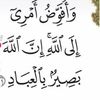 وَأُفَوِّضُ أَمْرِىٓ
إِلَى ٱللَّهِ ۚ إِنَّ ٱللَّهَ
بَصِيرٌۢ بِٱلْعِبَادِ